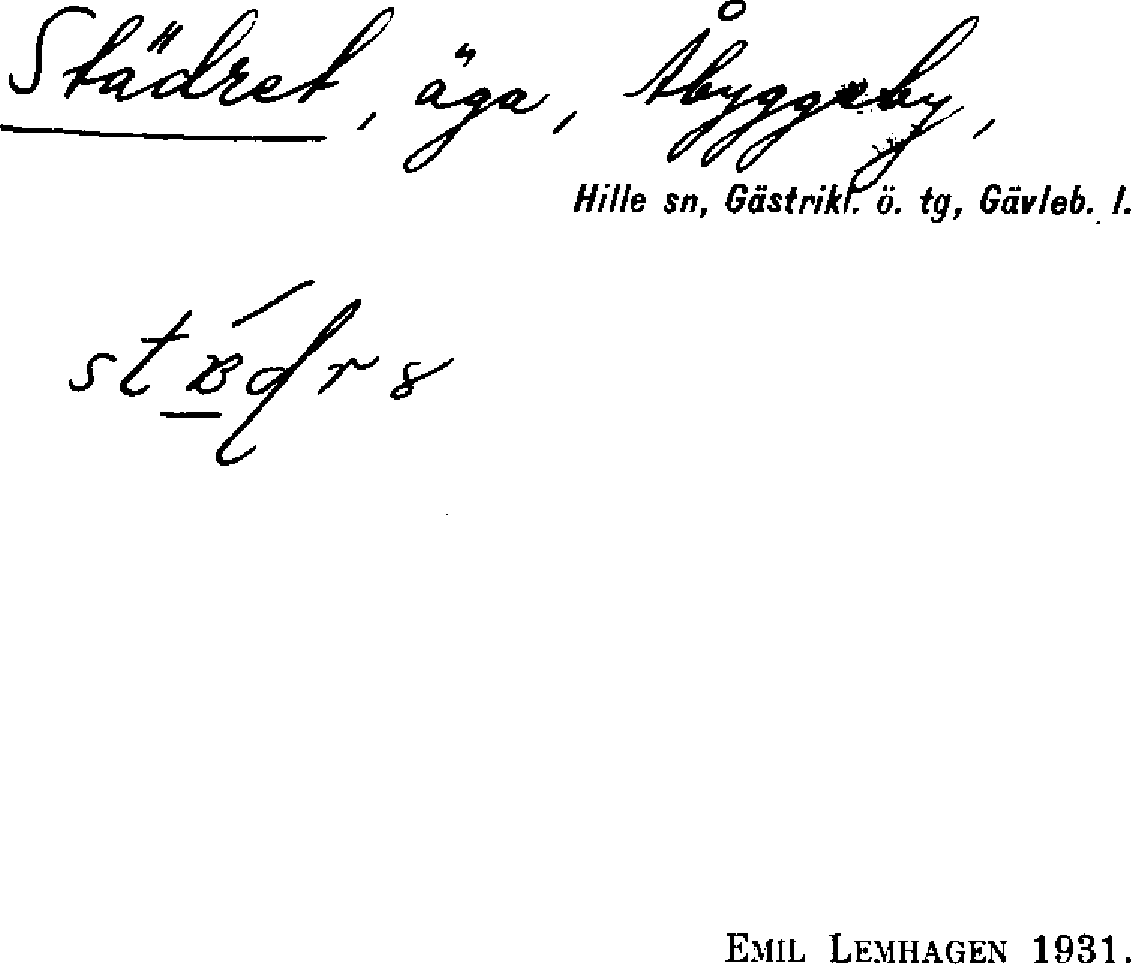 Städret, äga, Åbyggeby,
Hille sn, Gästrikl. ö. tg, Gävleb. l.
EMIL LEMHAGEN 1931.